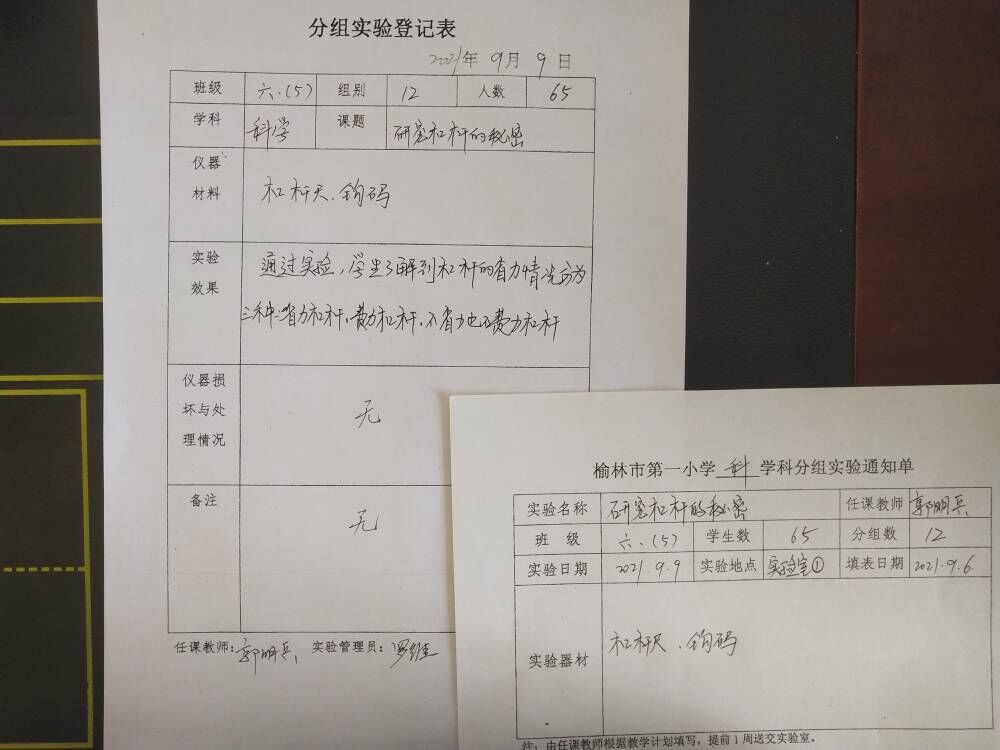 分组实验登记表
2021年 9月 9日
班级 六.(5) 组别 12 人数 65
学科 科学 课题 研究杠杆的秘密
仪器
材料
杠杆尺.钩码
实验
效果
通过实验,学生了解到杠杆的省力情况分为
三种:省力杠杆.费力杠杆.不省力也不费力杠杆
仪器损
坏与处
理情况
无
备注
无
任课教师:郭明兵 实验管理员:罗维
榆林市第一小学 科 学科分组实验通知单
实验名称 研究杠杆的秘密 任课教师 郭明兵
班 级 六.(5) 学生数 65 分组数 12
实验日期 2021.9.9 实验地点 实验室① 填表日期 2021.9.6
实验器材 杠杆尺.钩码
注:由任课教师根据教学计划填写,提前1周送交实验室。